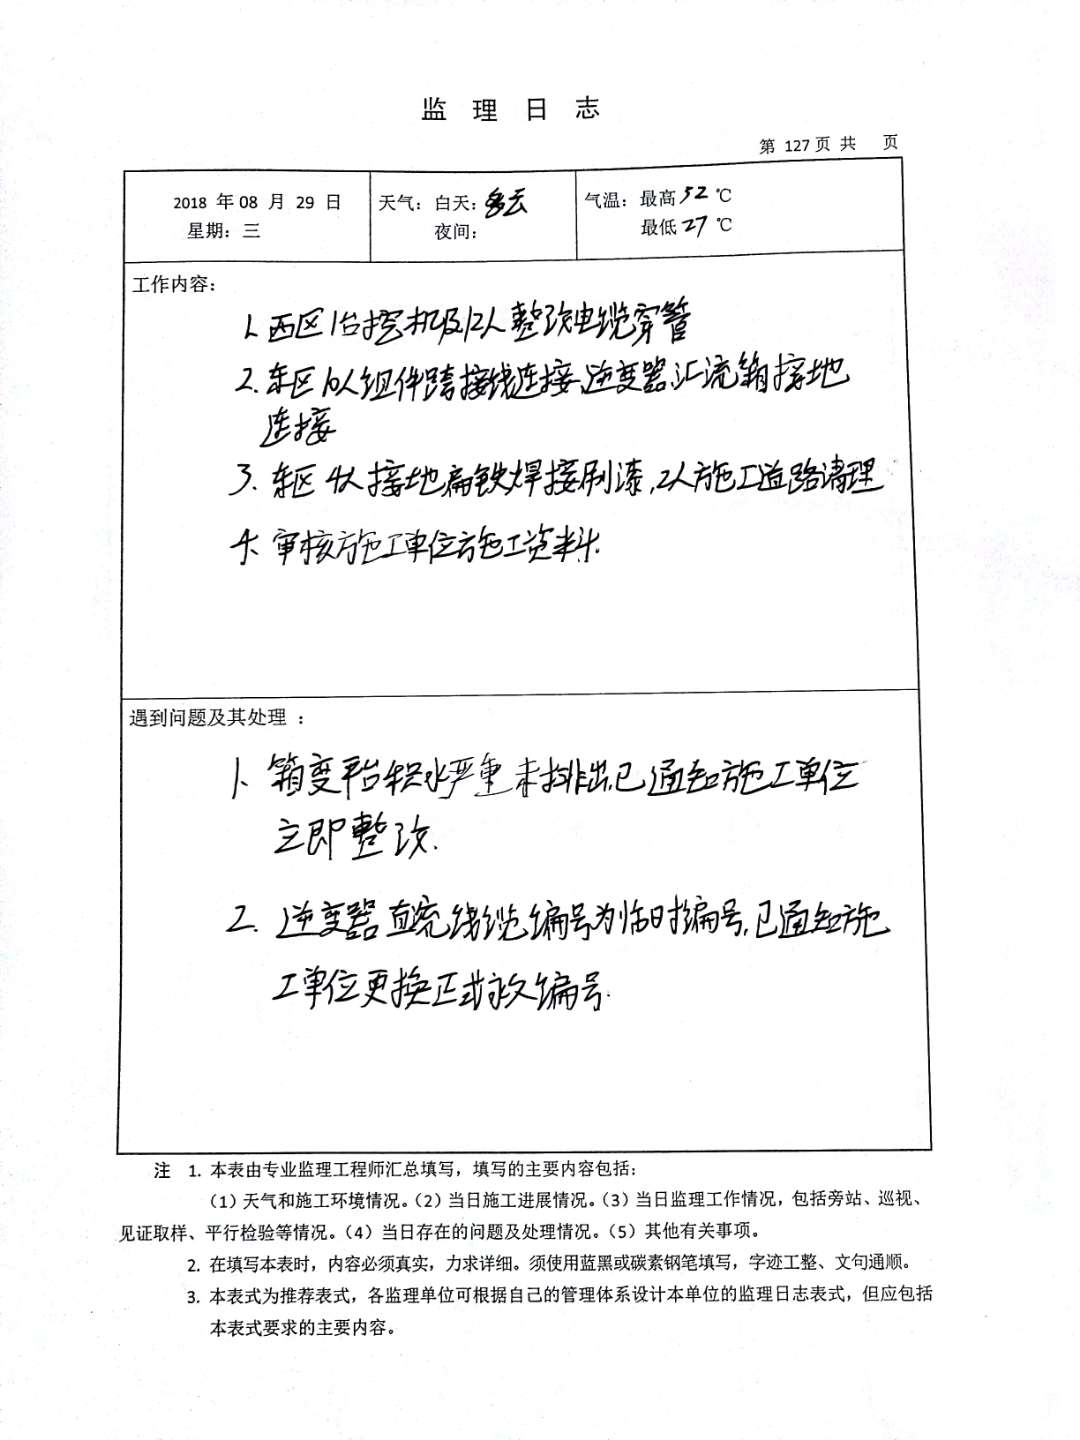 监 理 日 志
第 127 页 共 页
2018 年 08 月 29 日
星期：三
天气：白天：多云
夜间：
气温：最高 32 ℃
最低 27 ℃
工作内容：
1. 西区1台挖机及12人整改电缆穿管
2. 东区10人组件跨接线连接、逆变器汇流箱接地
连接
3. 东区4人接地扁铁焊接刷漆,2人施工道路清理
4. 审核施工单位施工资料.
遇到问题及其处理 ：
1. 箱变平台积水严重未排出,已通知施工单位
立即整改.
2. 逆变器直流线缆编号为临时编号,已通知施
工单位更换正式编号.
注 1. 本表由专业监理工程师汇总填写，填写的主要内容包括：
（1）天气和施工环境情况。（2）当日施工进展情况。（3）当日监理工作情况，包括旁站、巡视、
见证取样、平行检验等情况。（4）当日存在的问题及处理情况。（5）其他有关事项。
2. 在填写本表时，内容必须真实，力求详细。须使用蓝黑或碳素钢笔填写，字迹工整、文句通顺。
3. 本表式为推荐表式，各监理单位可根据自己的管理体系设计本单位的监理日志表式，但应包括
本表式要求的主要内容。